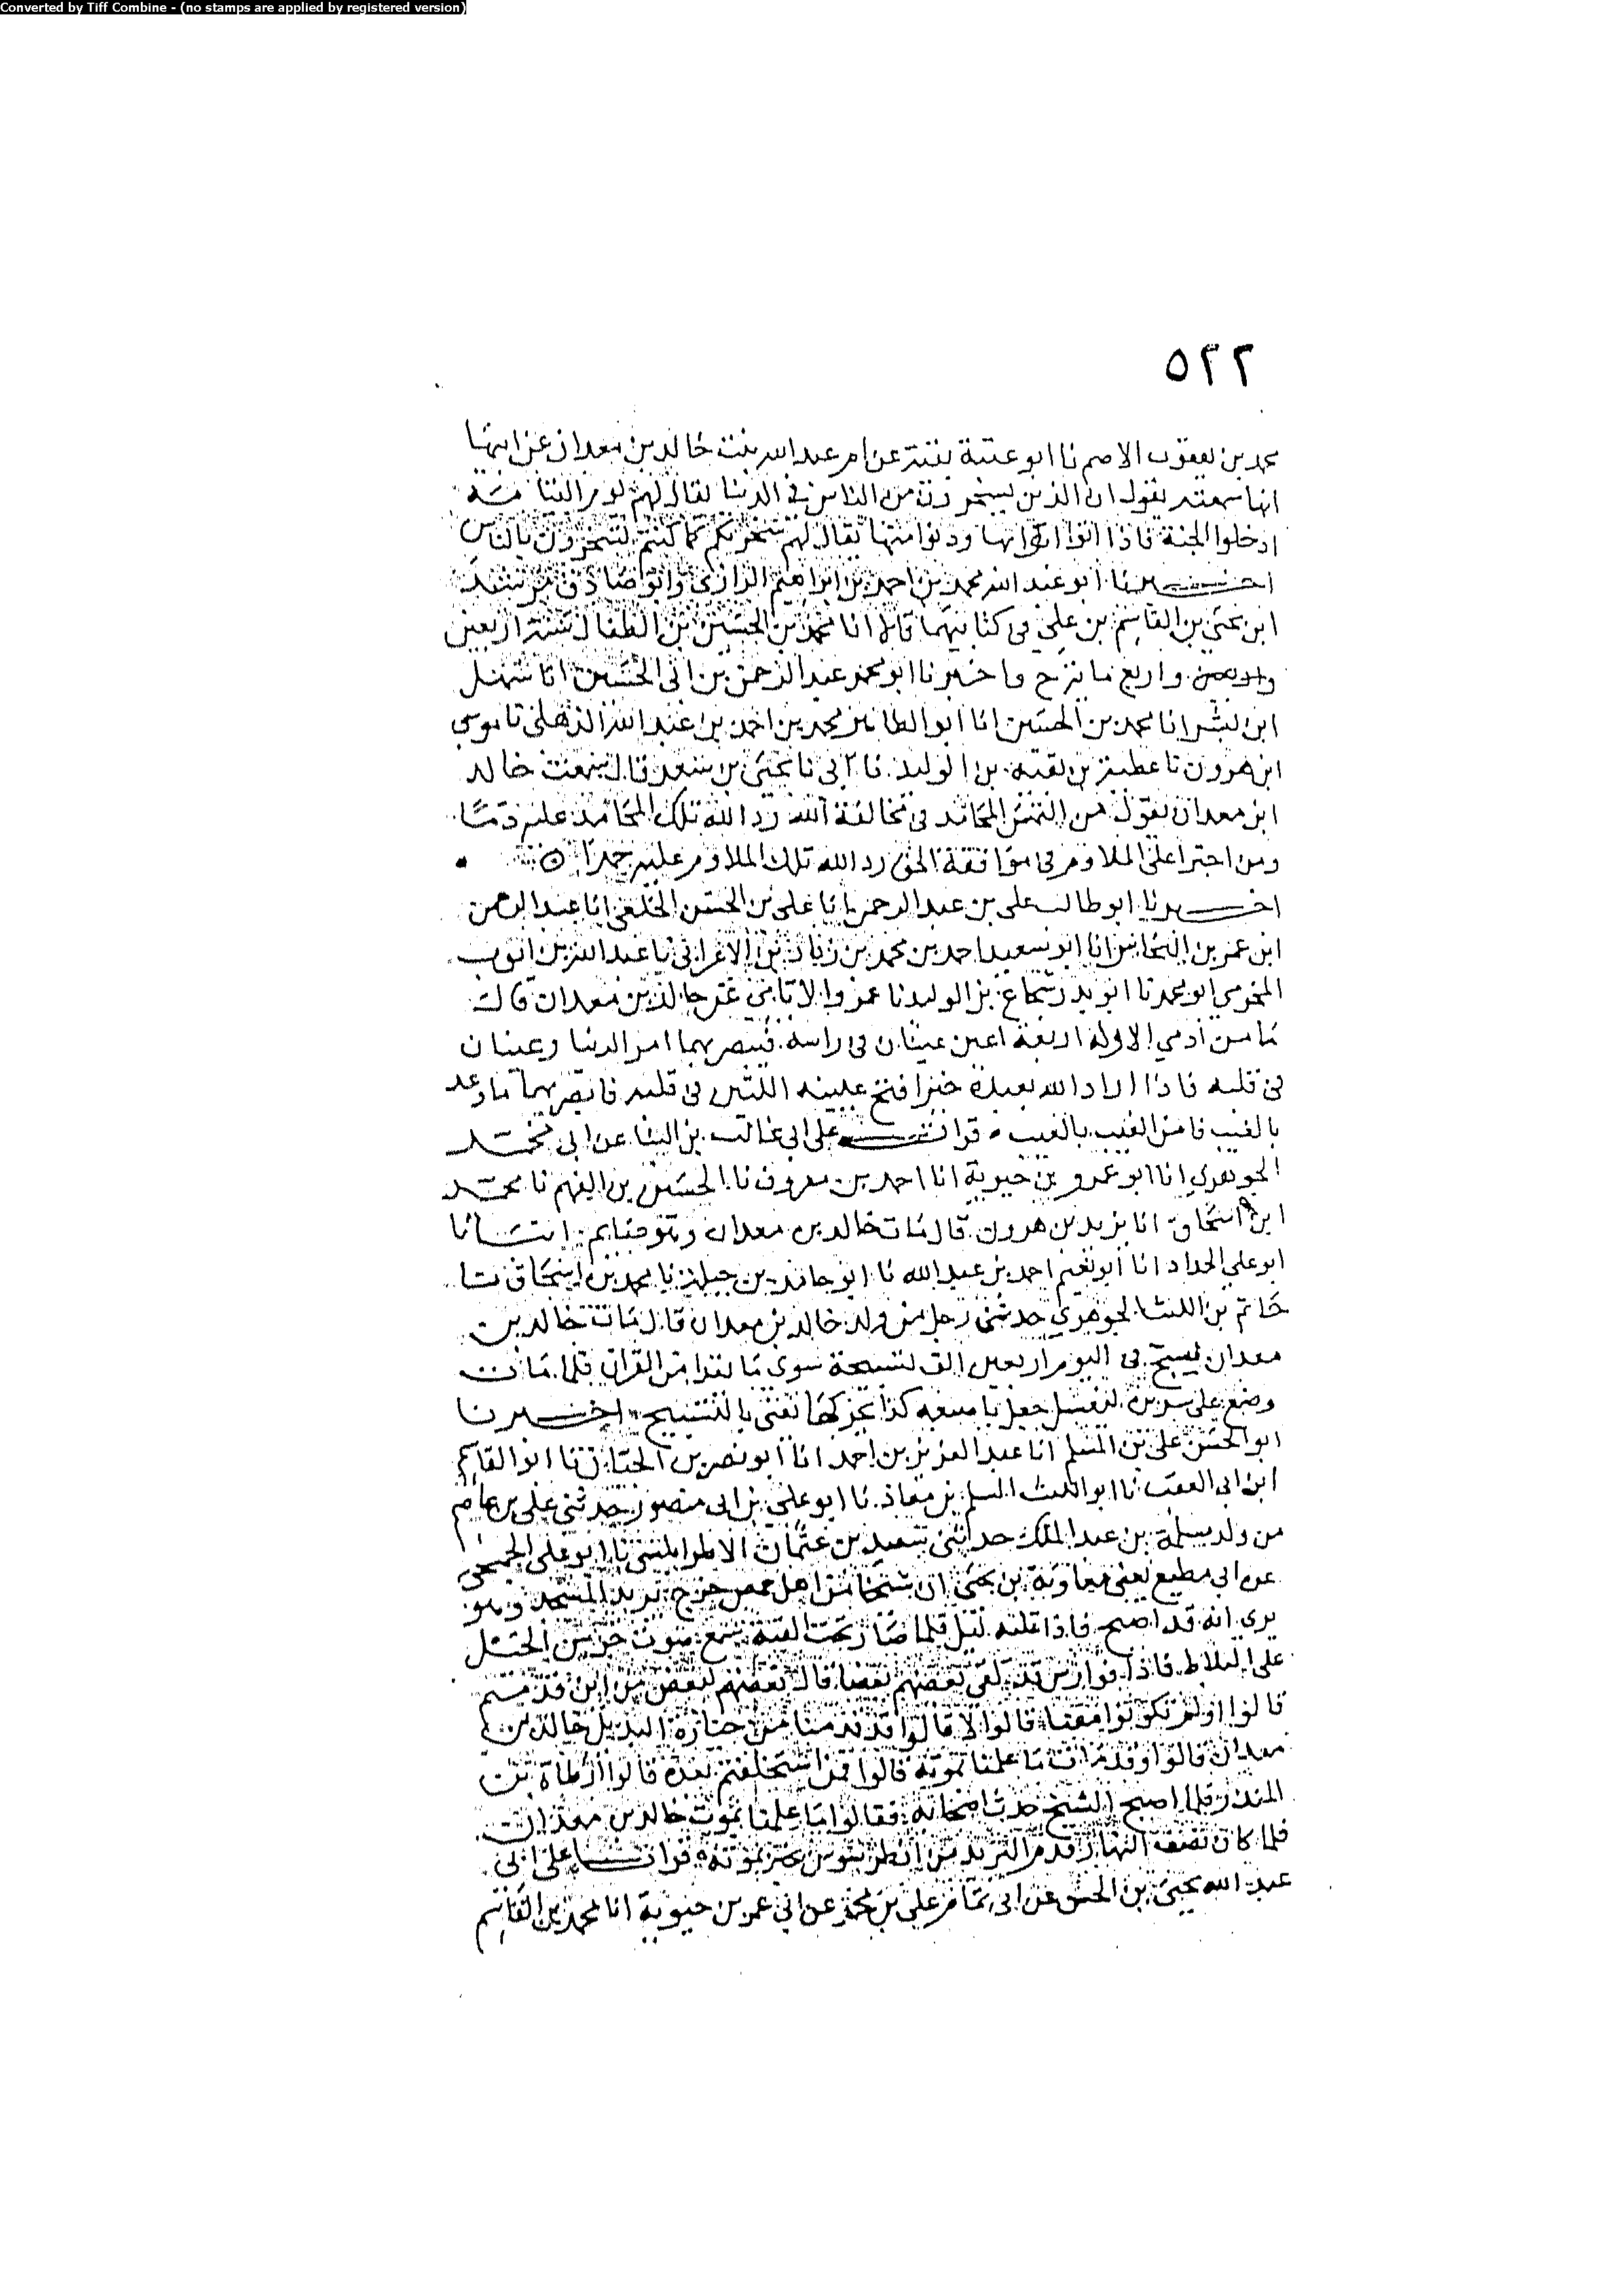 Converted by Tiff Combine - (no stamps are applied by registered version)
٥٢٢
محمد بن يعقوب الاصم نا ابو عتبة بقية عن ام عبد الله بنت خالد بن معدان عن ابيها
انها سمعته يقول ان الذين يسخرون من الناس في الدنيا يقال لهم يوم القيامة
ادخلوا الجنة فاذا اتوا ابوابها ودنوا منها يقال لهم سخر بكم كما كنتم تسخرون بالناس
اخبرنا ابو عبد الله محمد بن احمد بن ابراهيم الرازي وابو صادق مرشد
ابن يحيى بن القاسم بن علي في كتابيهما قالا انا محمد بن الحسين بن الطفال سنة اربعين
واربع مائة ح واخبرنا ابو محمد عبد الرحمن بن ابي الحسين انا سهل
ابن بشر انا محمد بن الحسين انا ابو الطاهر محمد بن احمد بن عبد الله الذهلي نا موسى
ابن هرون نا عطية بن بقية بن الوليد نا ابي نا بحير بن سعد قال سمعت خالد
ابن معدان يقول من التمس المحامد في مخالفة الله رد الله تلك المحامد عليه ذما
ومن اجترا على الملاوم في موافقة الحق رد الله تلك الملاوم عليه حمدا
اخبرنا ابو طالب علي بن عبد الرحمن انا علي بن الحسن الخلعي انا عبد الرحمن
ابن عمر بن النحاس انا ابو سعيد احمد بن محمد بن زياد بن الاعرابي نا عبد الله بن ايوب
المخرمي ابو محمد نا ابو بدر شجاع بن الوليد نا عمرو الايامي عن خالد بن معدان قال
ما من ادمي الا وله اربعة اعين عينان في راسه فيبصر بهما امر الدنيا وعينان
في قلبه فاذا اراد الله بعبده خيرا فتح عينيه اللتين في قلبه فابصر بهما ما وعد
بالغيب فامن الغيب بالغيب قرات على ابي غالب بن البنا عن ابي محمد
الجوهري انا ابو عمرو بن حيوية انا احمد بن معروف نا الحسين بن الفهم نا محمد
ابن اسحاق انا يزيد بن هرون قال مات خالد بن معدان وهو صايم انبانا
ابو علي الحداد انا ابو نعيم احمد بن عبد الله نا ابو حامد بن جبلة نا محمد بن اسحاق نا
حاتم بن الليث الجوهري حدثني رجل من ولد خالد بن معدان قال مات خالد بن
معدان يسبح في اليوم اربعين الف تسبيحة سوى ما يقرا من القران فلما مات
وضع على سريره ليغسل جعل باصبعه كذا يحركها يعني بالتسبيح اخبرنا
ابو الحسن علي بن المسلم انا عبد العزيز بن احمد انا ابو نصر بن الجبان نا ابو القاسم
ابن ابي العقب نا ابو الليث السلم بن معاذ نا ابو علي بن ابي منصور حدثني علي بن عاصم
من ولد مسلمة بن عبد الملك حدثني سعيد بن عثمان الاطرابلسي نا ابو علي الجمحي
عن ابي مطيع يعني معاوية بن يحيى ان شيخا من اهل حمص خرج يريد المسجد وهو
يرى انه قد اصبح فاذا عليه ليل فلما صار تحت القبة سمع صوت جرس الخيل
على البلاط فاذا فوارس قد لقي بعضهم بعضا قال بعضهم لبعض من اين قدمتم
قالوا اولم تكونوا معنا قالوا لا قالوا قدمنا من جنازة البديل خالد بن
معدان قالوا وقد مات ما علمنا بموته قالوا فمن استخلفتم بعده قالوا ارطاة بن
المنذر فلما اصبح الشيخ حدث اصحابه فقالوا ما علمنا بموت خالد بن معدان
فلما كان نصف النهار قدم البريد من انطرسوس يخبر بموته قرات على ابي
عبد الله يحيى بن الحسن عن ابي تمام علي بن محمد عن ابي عمر بن حيوية انا محمد بن القاسم